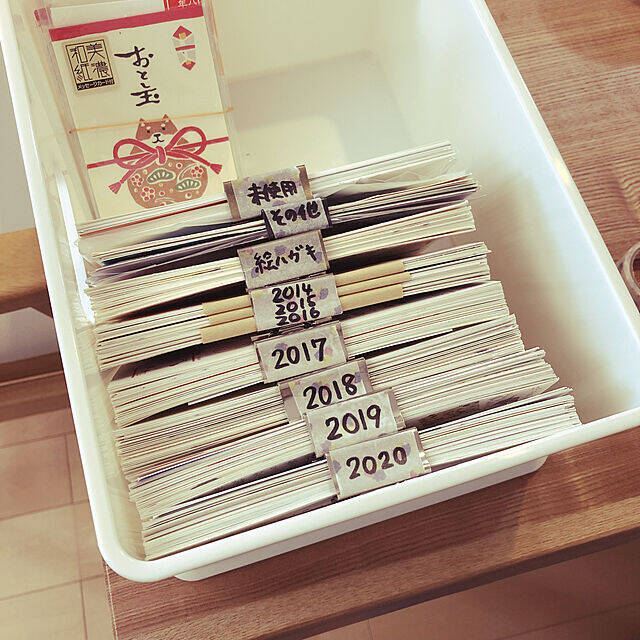 美濃
和紙
メッセージカード付
おとし玉
未使用
その他
絵ハガキ
2014
2015
2016
2017
2018
2019
2020